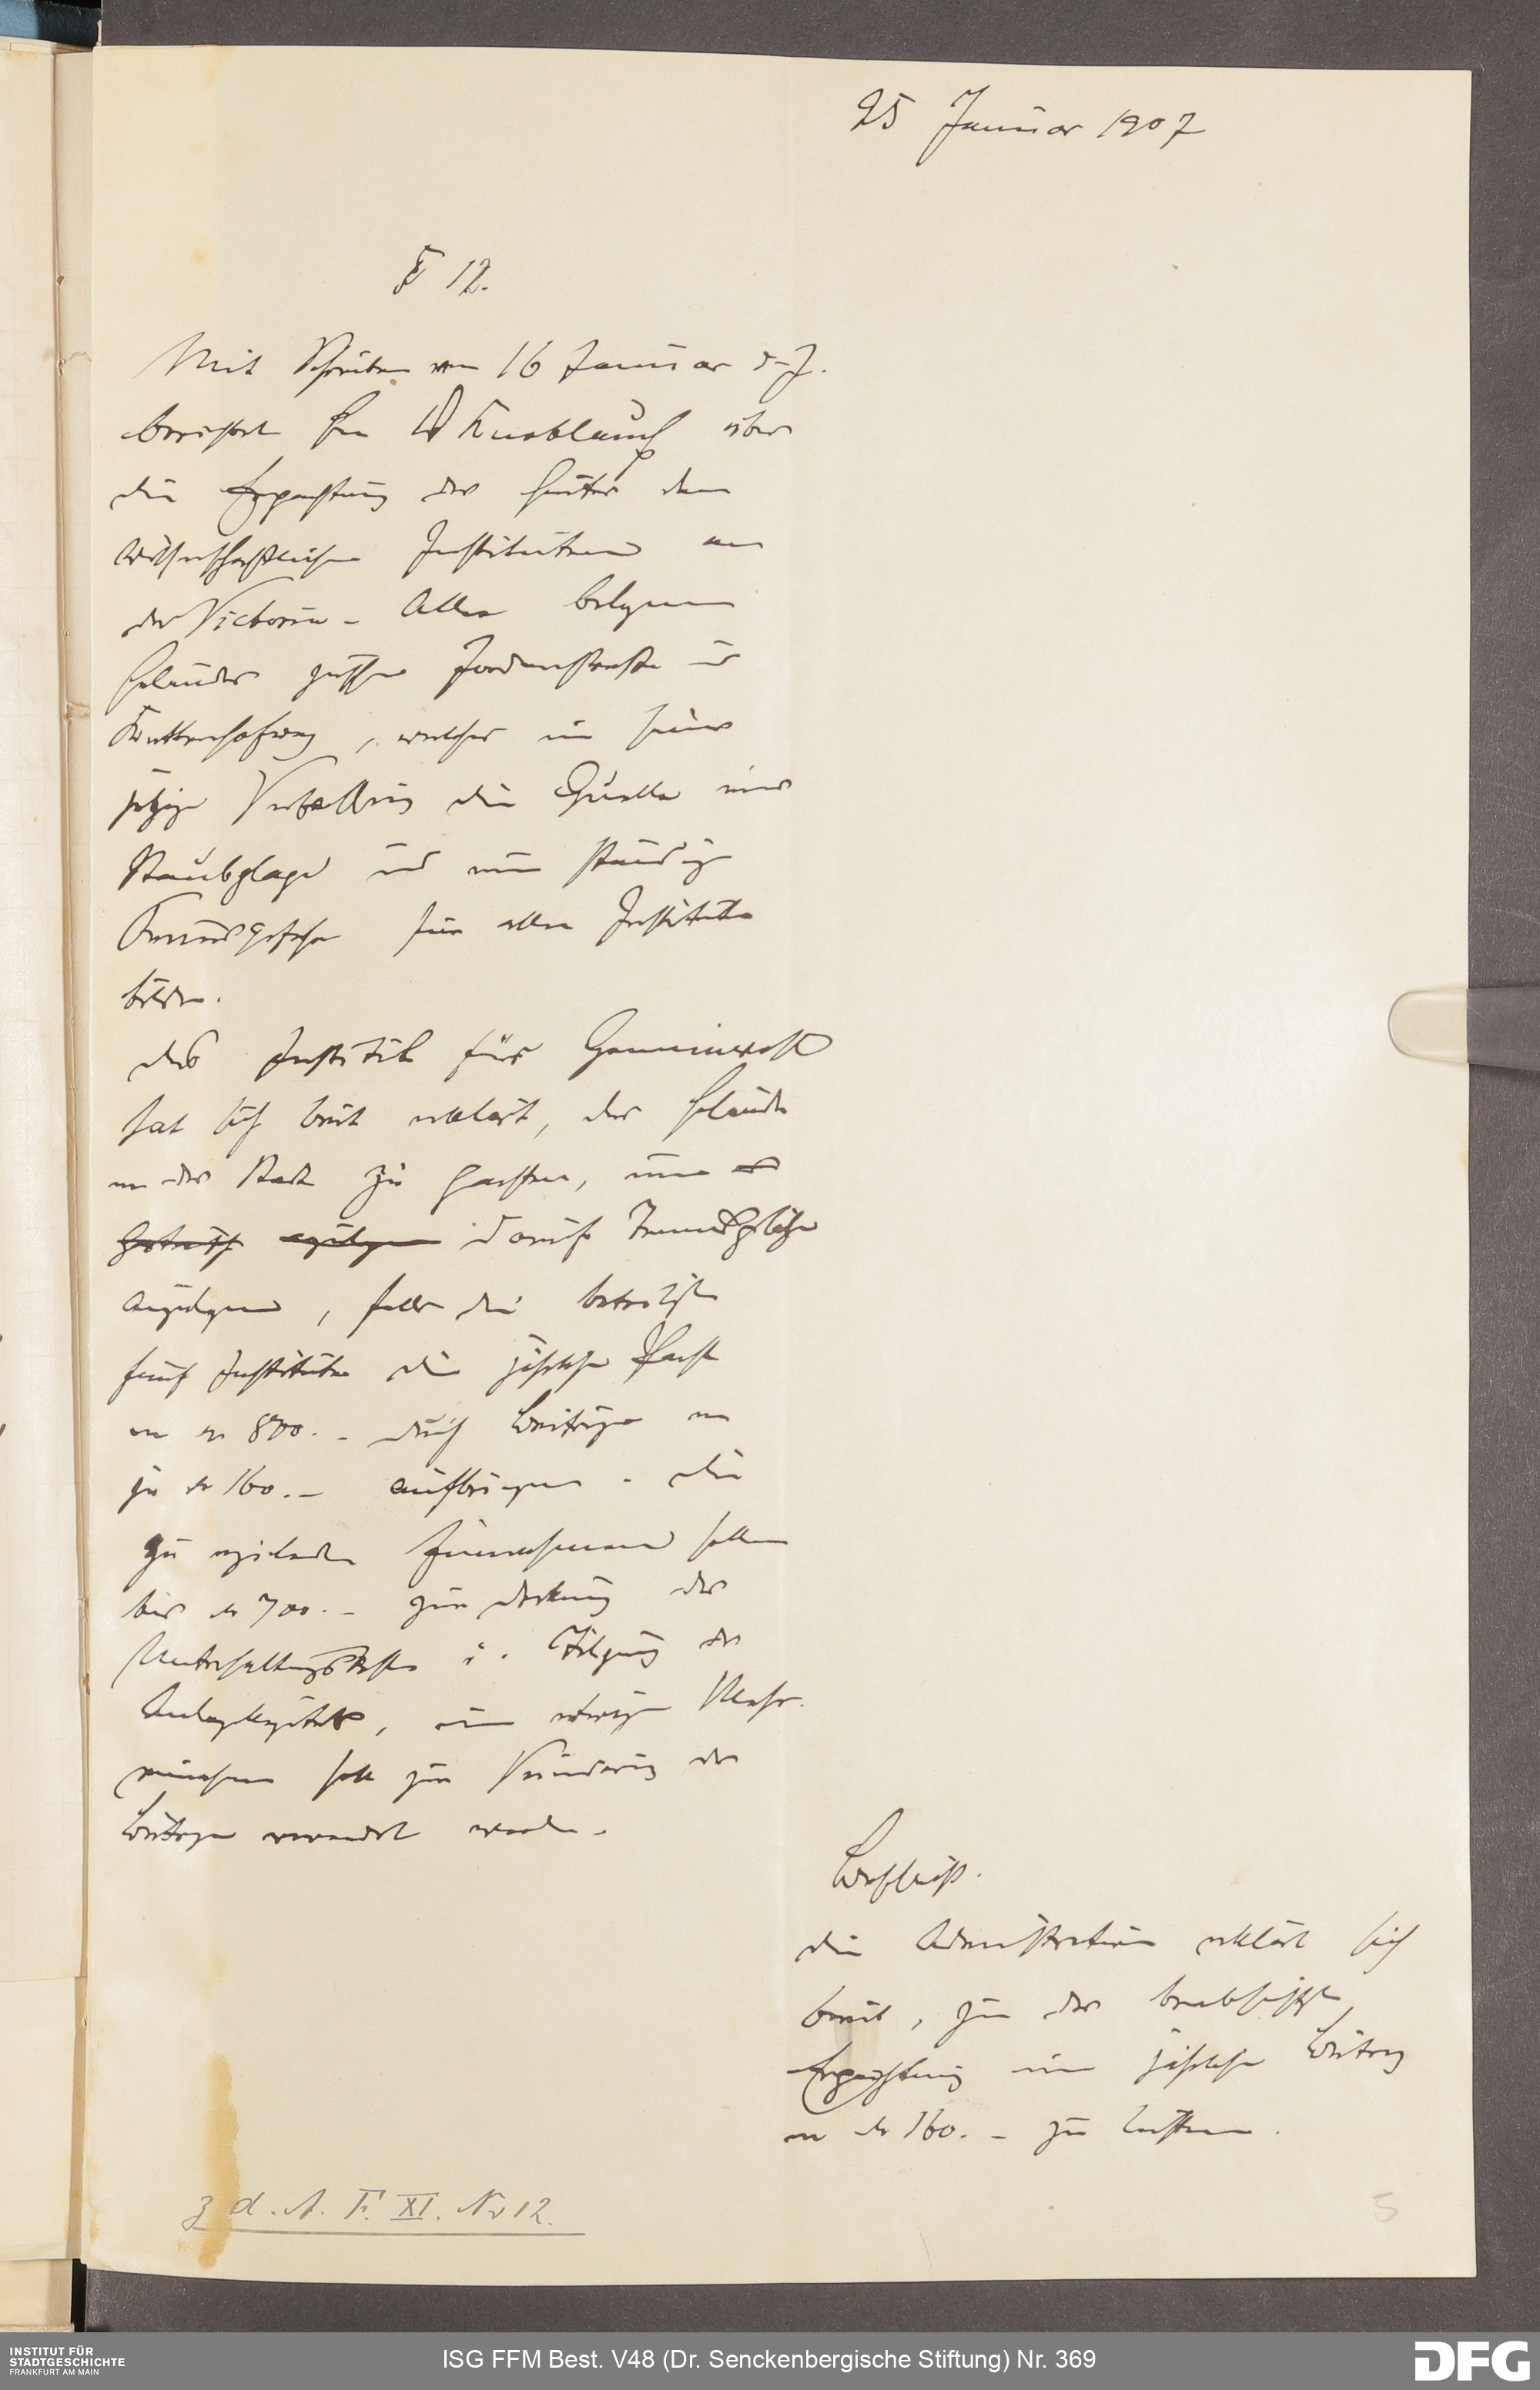 25 Januar 1907
§ 12.
Mit Schreiben vom 16 Januar d. J.
berichtet Herr Dr Knoblauch über
die Erpachtung des hinter den
wissenschaftlichen Instituten an
der Victoria-Allee belegenen
Geländes zwischen Jordanstrasse und
Kettenhofweg, welches in seiner
jetzigen Verfassung die Quelle einer
Staubplage und eine ständige
für alle Institute
bilde.
Das Institut für Gemeinwohl
hat sich bereit erklärt, das Gelände
von der Stadt zu pachten, um
darauf Tennisplätze
anzulegen, falls die beteiligten
fünf Institute die jährliche Pacht
von M 800.- durch Beiträge von
je M 160.- aufbringen. Die
zu erzielenden Einnahmen sollen
bis M 700.- zur Deckung der
Unterhaltungskosten u. Tilgung des
Anlagekapitals, eine etwaige Mehr-
einnahme soll zur Verminderung der
Beiträge verwandt werden.
Beschluß.
Die Administration erklärt sich
bereit, zu der beabsichtigten
Erpachtung einen jährlichen Beitrag
von M 160.- zu leisten.
z d. A. F. XI. No 12.
5
INSTITUT FÜR
STADTGESCHICHTE
FRANKFURT AM MAIN
ISG FFM Best. V48 (Dr. Senckenbergische Stiftung) Nr. 369
DFG